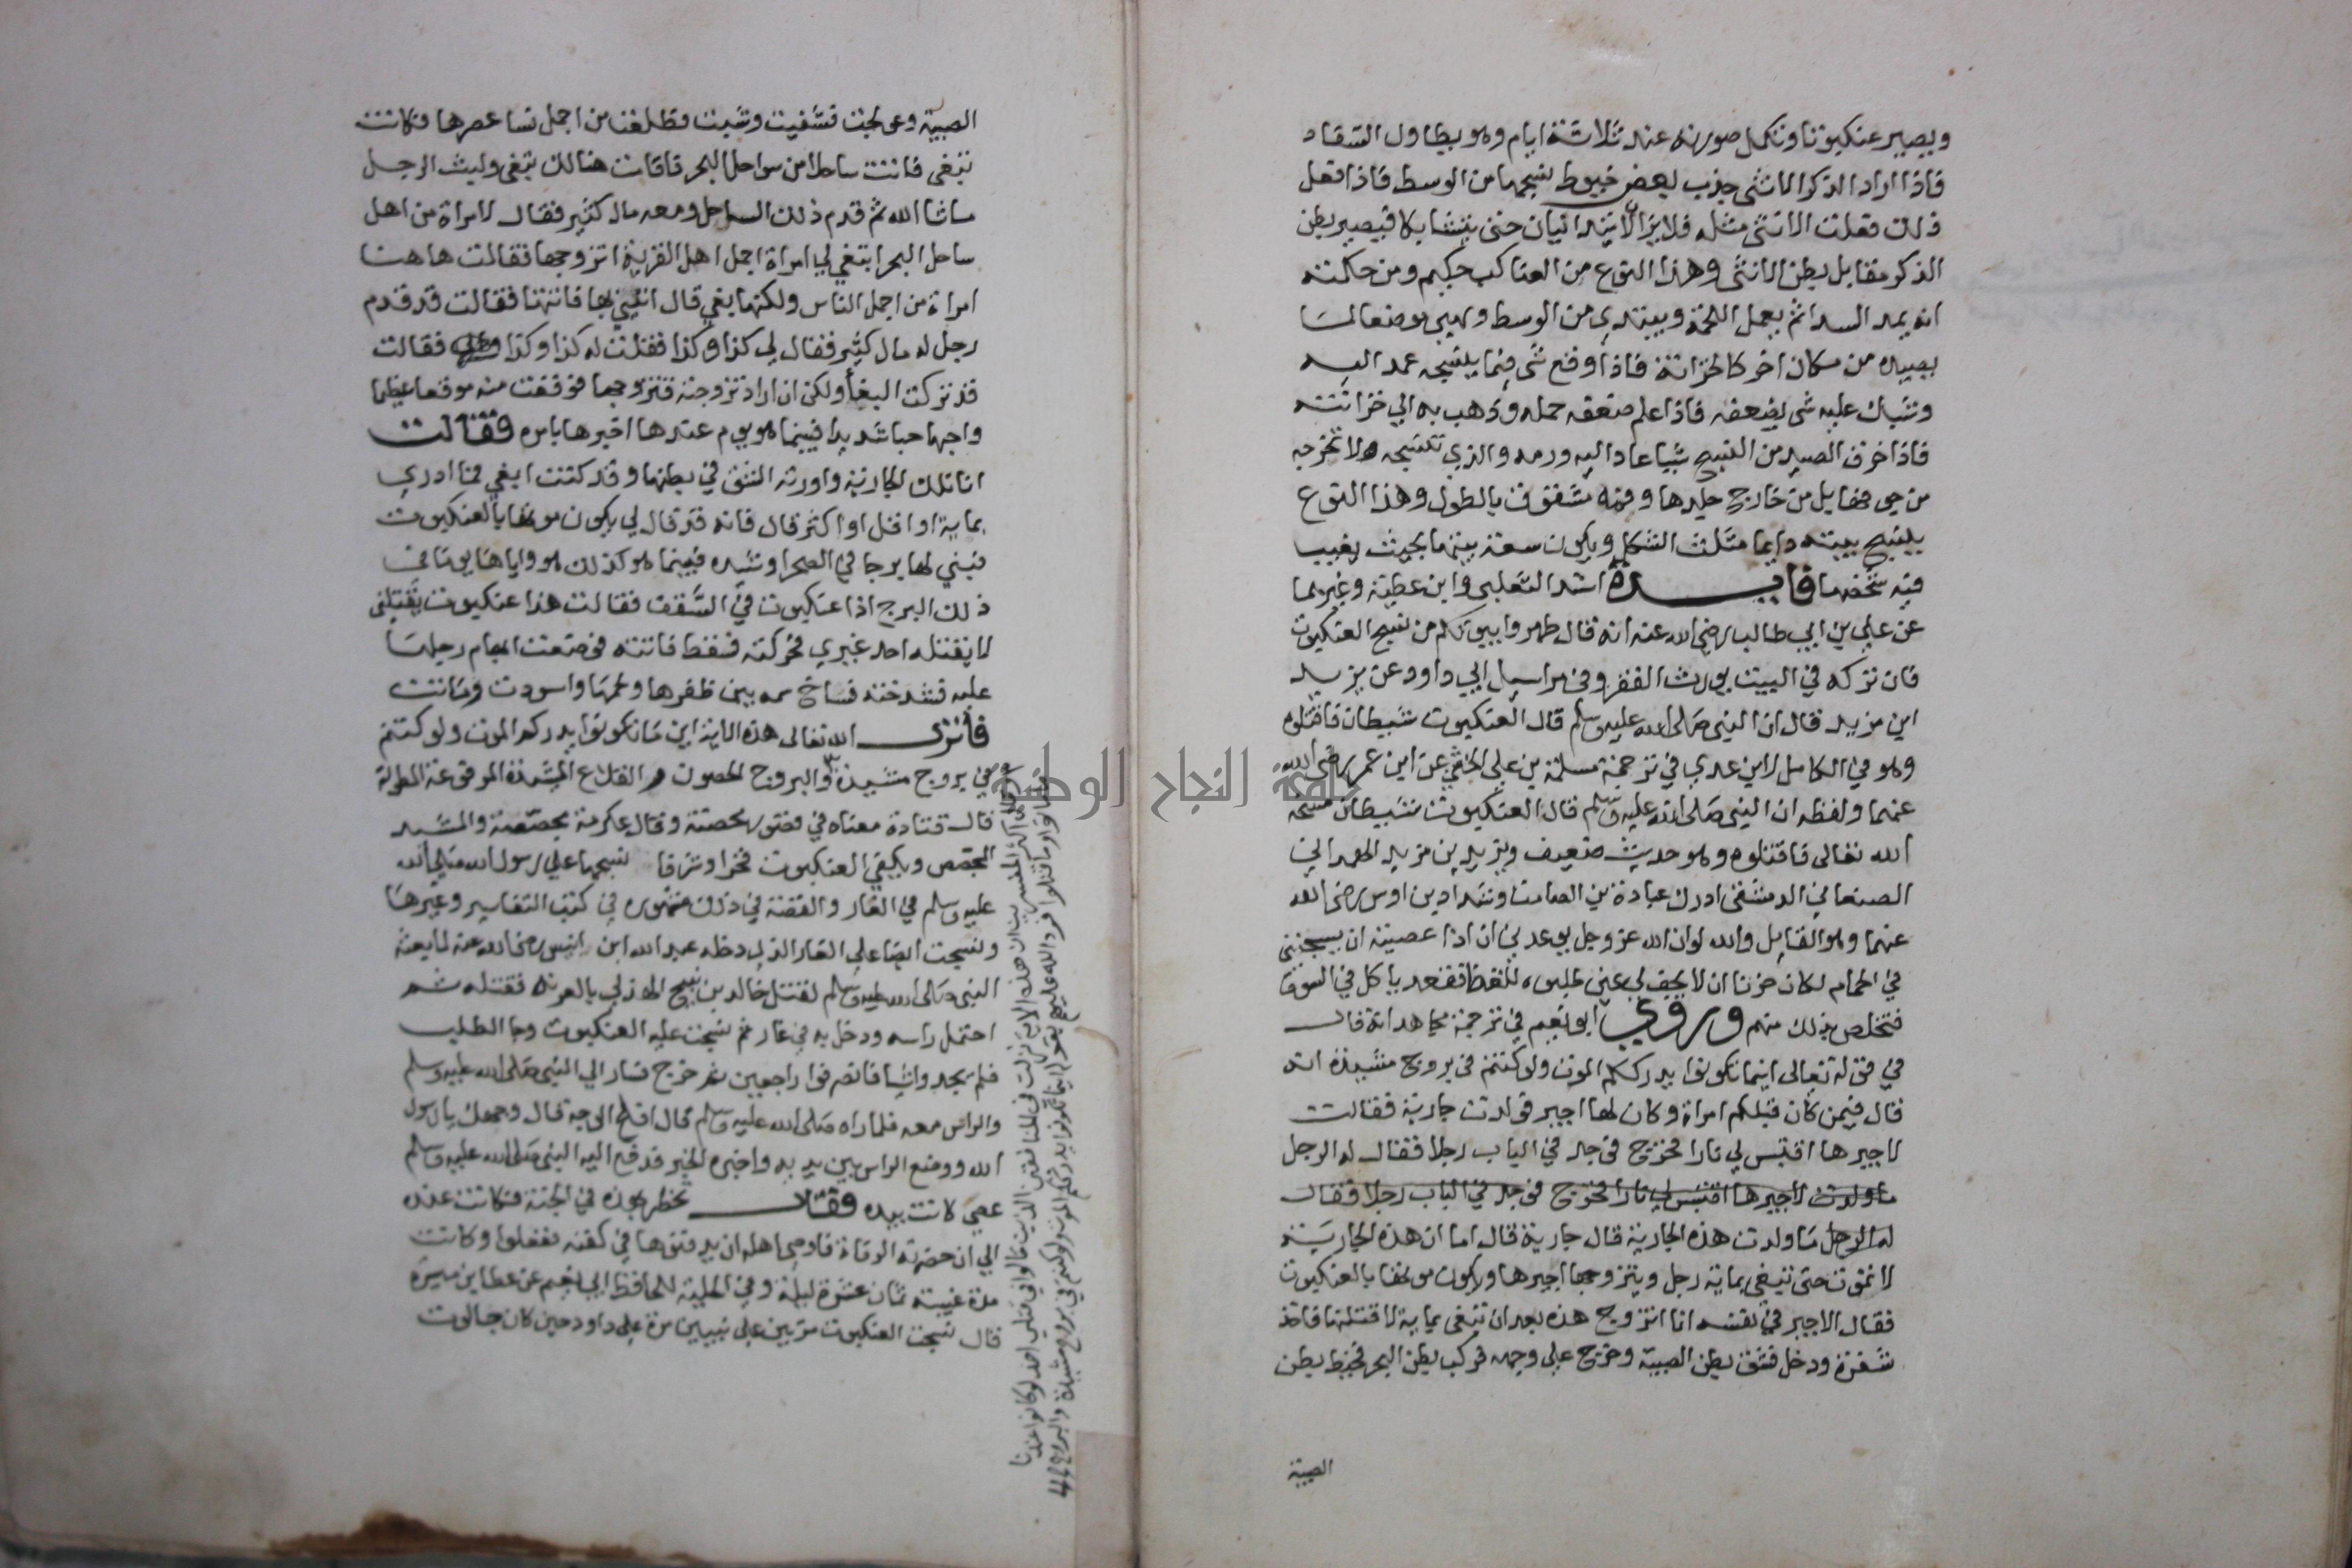 ويصير عنكبوتا وتكمل صورته عند ثلاثة ايام وهو يطاول السفاد
فاذا اراد الذكر الانثى جذب بعض خيوط نسجها من الوسط فاذا فعل
ذلك فعلت الانثى مثله فلا يزالان يتدانيان حتى يتشابكا فيصير بطن
الذكر مقابل بطن الانثى وهذا النوع من العناكب حكيم ومن حكمته
انه يمد السدا ثم يعمل اللحمة ويبتدي من الوسط ويهيي موضعا لما
يصيده من مكان اخر كالخزانة فاذا وقع شي فيما ينسجه عمد اليه
وشبك عليه شي يضعفه فاذا علم ضعفه حمله وذهب به الي خزانته
فاذا خرق الصيد من النسج شيا عاد اليه ورمه والذي تنسجه لا تخرجه
من جوفها بل من خارج جلدها وفمه مشقوق بالطول وهذا النوع
ينسج بيته دايما مثلث الشكل ويكون سعة بيتها بحيث يغيب
فيه شخصها فايــدة اسند الثعلبي وابن عطية وغيرهما
عن علي بن ابي طالب رضي الله عنه انه قال طهروا بيوتكم من نسج العنكبوت
فان تركه في البيت يورث الفقر وفي مراسيل ابي داود عن يزيد
ابن مزيد قال ان النبي صلى الله عليه وسلم قال العنكبوت شيطان فاقتلوه
وهو في الكامل لابن عدي في ترجمة مسلمة بن علي الخشني عن ابن عمر رضي الله
عنهما ولفظه ان النبي صلى الله عليه وسلم قال العنكبوت شيطان مسخه
الله تعالى فاقتلوه وهو حديث ضعيف ويزيد بن مزيد الهمداني
الصنعاني الدمشقي ادرك عبادة بن الصامت وشداد بن اوس رضي الله
عنهما وهو القايل والله لو ان الله عز وجل يوعدني ان اذا عصيته ان يسجنني
في الحمام لكان حزنا ان لا يجف لي عين فقعد ياكل في السوق
فتخلص بذلك منهم وروي ابو نعيم في ترجمة مجاهد انه قال
في قوله تعالى اينما تكونوا يدرككم الموت ولو كنتم في بروج مشيدة انه
قال فيمن كان قبلكم امراة وكان لها اجير فولدت جارية فقالت
لاجيرها اقتبس لي نارا فخرج فوجد في الباب رجلا فقال له الرجل
ما ولدت لاجيرها اقتبس لي نارا فخرج فوجد في الباب رجلا فقال
له الرجل ما ولدت هذه الجارية قال جارية قال اما ان هذه الجارية
لا تموت حتى تبغي بماية رجل ويتزوجها اجيرها ويكون موتها بالعنكبوت
فقال الاجير في نفسه انا اتزوج هذه بعد ان تبغي بماية لاقتلنها فاخذ
شفرة ودخل فشق بطن الصبية وخرج على وجهه فركب بطن البحر فخيط بطن
الصبية
الصبية وعولجت فشفيت وشبت وطلعت من اجمل نسا عصرها فكانت
تبغي فاتت ساحلا من سواحل البحر فاقامت هنالك تبغي ولبث الرجل
ما شا الله ثم قدم ذلك الساحل ومعه مال كثير فقال لامراة من اهل
ساحل البحر ابتغي لي امراة اجمل اهل القرية اتزوجها فقالت هاهنا
امراة من اجمل الناس ولكنها بغي قال ائتيني بها فاتتها فقالت قد قدم
رجل له مال كثير فقال لي كذا وكذا فقلت له كذا وكذا فقالت
قد تركت البغا ولكن ان اراد تزوجته فتزوجها فوقعت منه موقعا عظيما
واحبها حبا شديدا فبينما هو يوم عندها اخبرها بامره فقالت
انا تلك الجارية واورته الشق في بطنها وقد كنت ابغي فما ادري
بماية او اقل او اكثر قال فانه قد قال لي يكون موتها بالعنكبوت
فبني لها برجا في الصحرا وشيده فبينما هو كذلك هو واياها يوما في
ذلك البرج اذا عنكبوت في السقف فقالت هذا عنكبوت يقتلني
لا يقتله احد غيري فحركته فسقط فاتته فوضعت ابهام رجلها
عليه فشدخته فساخ سمه بين ظفرها ولحمها واسودت وماتت
فانزل الله تعالى هذه الاية اين ما تكونوا يدرككم الموت ولو كنتم
في بروج مشيدة والبروج الحصون والقلاع المشيدة المرفوعة المطولة
قال قتادة معناه في قصور محصنة وقال عكرمة مجصصة والمشيد
المجصص ويكفي العنكبوت فخرا وشرفا نسجها علي رسول الله صلى الله
عليه وسلم في الغار والقصة في ذلك مشهورة في كتب التفاسير وغيرها
ونسجت ايضا علي الغار الذي دخله عبد الله ابن انيس رضي الله عنه لما بعثه
النبي صلى الله عليه وسلم لقتل خالد بن نبيح الهذلي بالعرنة فقتله ثم
احتمل راسه ودخل به في غار ثم نسجت عليه العنكبوت وجا الطلب
فلم يجدوا شيا فانصرفوا راجعين ثم خرج فسار الي النبي صلى الله عليه وسلم
والراس معه فلما راه صلى الله عليه وسلم قال افلح الوجه قال وجهك يا رسول
الله ووضع الراس بين يديه واخبره الخبر فدفع اليه النبي صلى الله عليه وسلم
عصى كانت بيده وقال تخصر بهذه في الجنة فكانت عنده
الي ان حضرته الوفاة فاوصى اهله ان يدفنوها في كفنه ففعلوا وكانت
مدة غيبته ثمان عشرة ليلة وفي الحلية للحافظ ابي نعيم عن عطا بن ميسرة
قال نسجت العنكبوت مرتين علي نبيين مرة على داود حين كان جالوت
وقال اكثر المفسرين ان هذه الاية نزلت في المنافقين الذين قالوا في قتلي احد لو كانوا عندنا
ما ماتوا وما قتلوا فرد الله عليهم بقوله اينما تكونوا يدرككم الموت ولو كنتم في بروج مشيدة والبروج
جامعة النجاح الوطنية